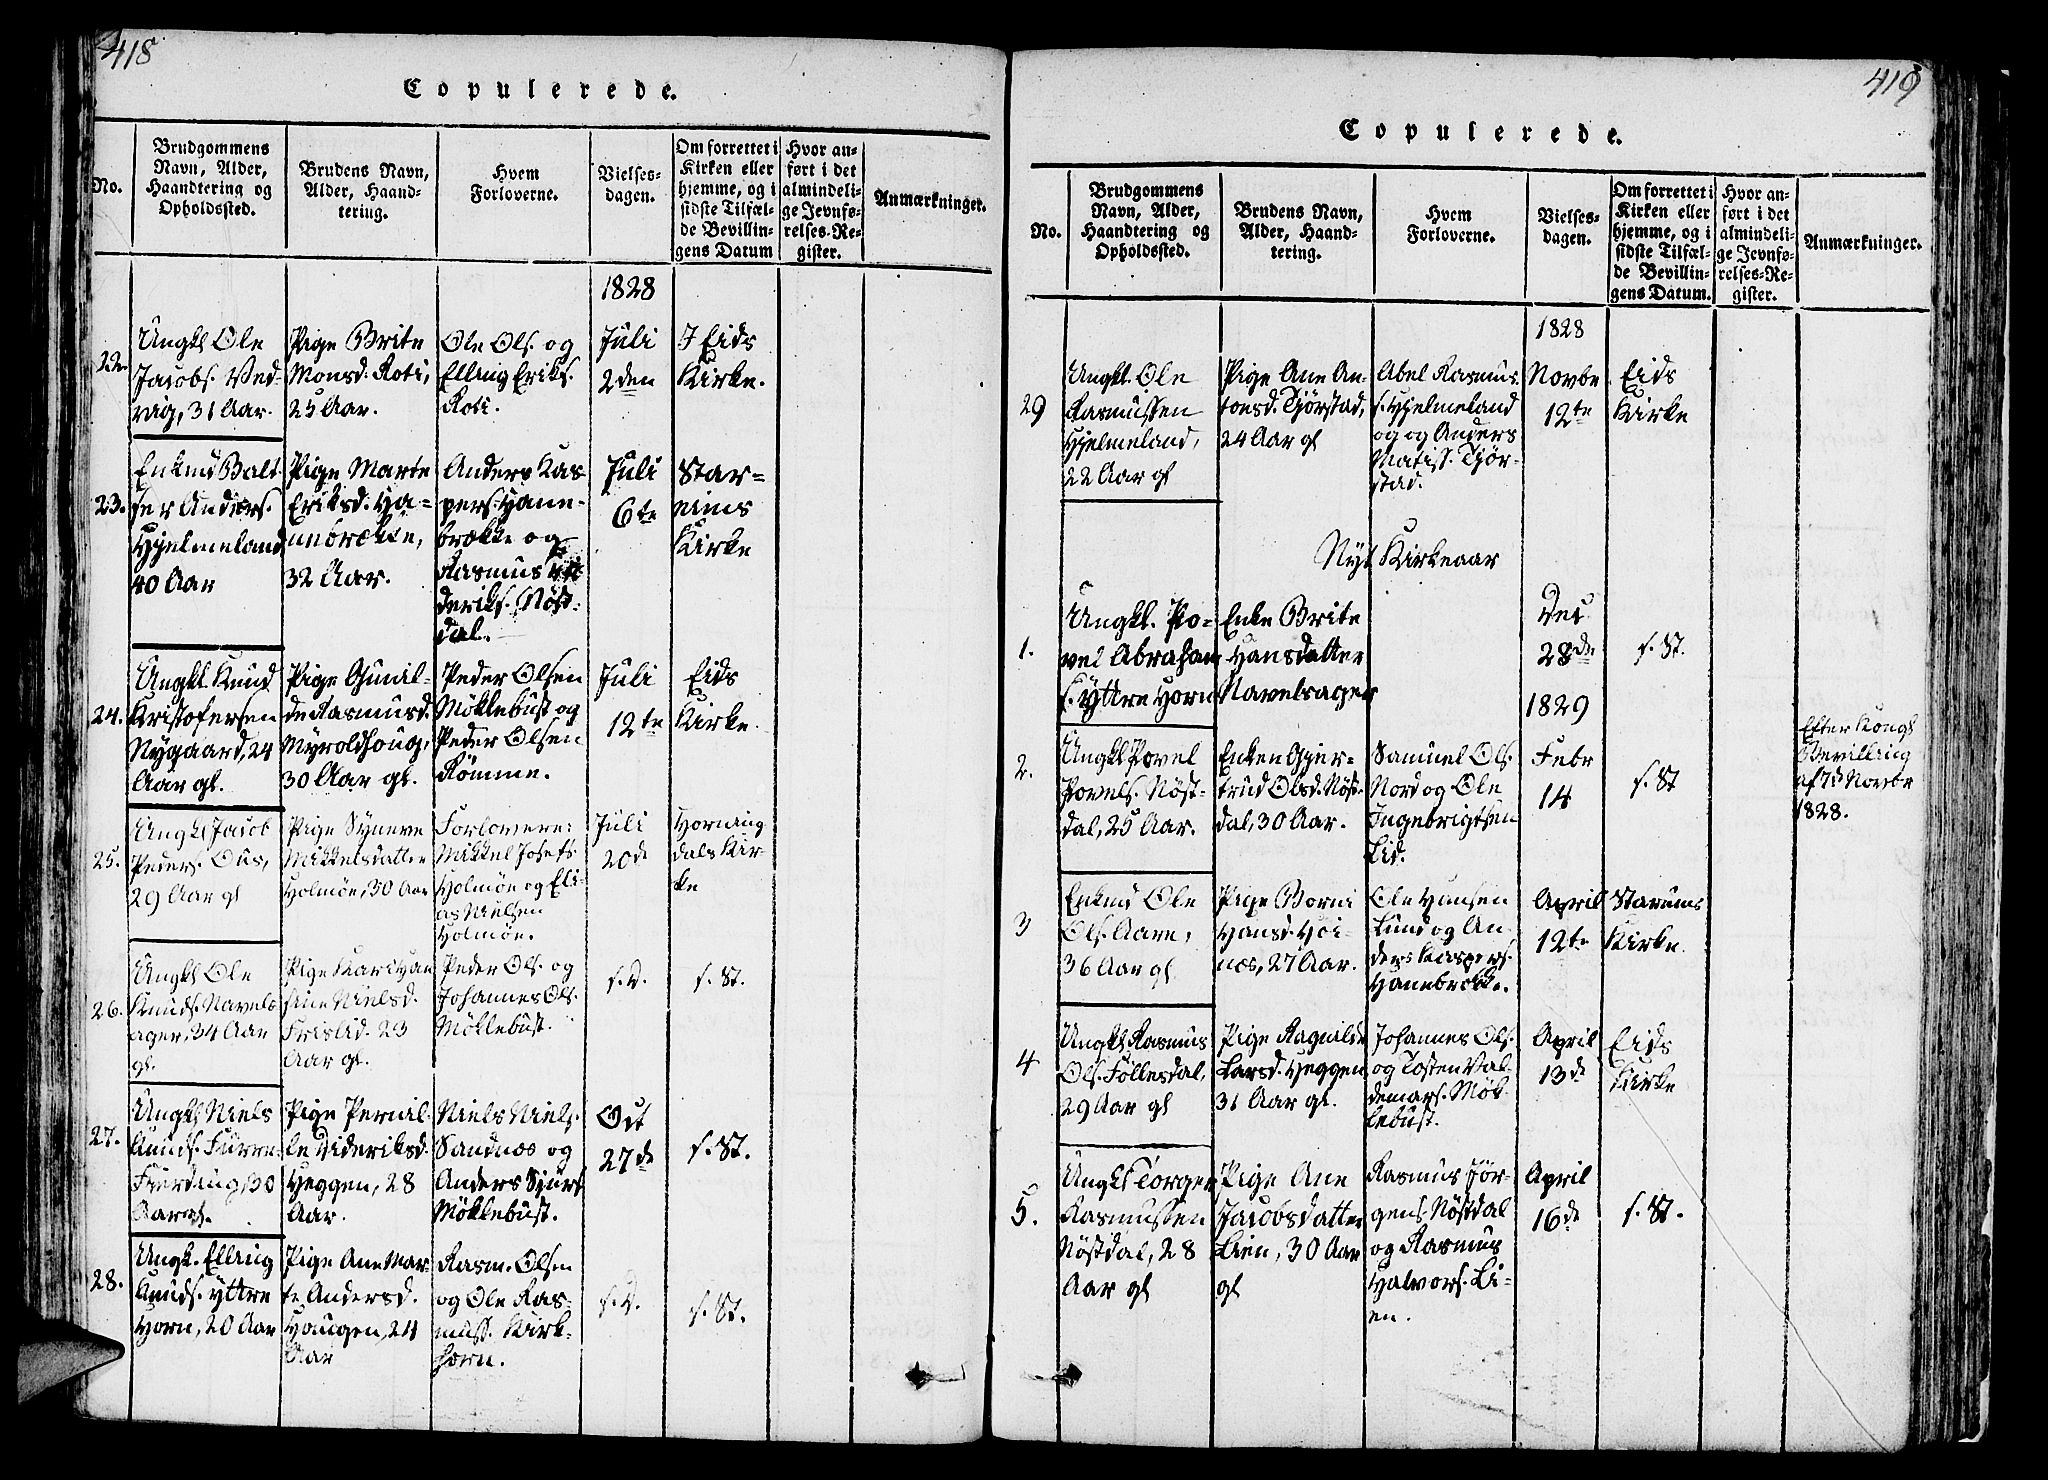 418
Copulerede.
No.
Brudgommens
Navn, Alder,
Haandtering og
Opholdssted.
Brudens Navn,
Alder, Haand-
tering.
Hvem
Forloverne.
Vielses-
dagen.
Om forrettet i
Kirken eller
hjemme, og i
sidste Tilfæl-
de Bevillin-
gens Datum
Hvor an-
ført i det
almindeli-
ge Jevnfø-
relses-Re-
gister.
Anmærkninger.
1828
22.
Ungkl Ole
Jacobs. Ved-
vig, 31 Aar.
Pige Brite
Monsd. Roti,
25 Aar.
Ole Ols. og
Elling Eriks.
Roti.
Juli
2den
I Eids
Kirke.
23.
Enkmd Balt
ser Anders.
Hjelmeland
40 Aar
Pige Marte
Eriksd. Ha-
nebrække,
32 Aar.
Anders Kas
pers. Hane-
brække og
Rasmus
deriks. Nöst-
dal.
Juli
6te
Star-
eims
Kirke
24.
Ungkl. Knud
Kristofersen
Nygaard, 24
Aar gl.
Pige Gunil-
de Rasmusd.
Myroldhoug,
30 Aar gl.
Peder Olsen
Möklebust og
Peder Olsen
Römme.
Juli
12te
Eids
Kirke.
25.
Ungkl Jacob
Peders. Ous,
29 Aar gl
Pige Syneve
Mikkelsdatter
Holmöe, 30 Aar
Forlovere:
Mikkel Josefs
Holmöe og Eli-
as Nielsen
Holmöe.
Juli
20de
Horning
dals Kir-
ke
26.
Ungkl Ole
Knuds. Navels
ager, 34 Aar
gl.
Pige Kari Han
sine Nielsd.
Frislid. 23
Aar gl.
Peder Ols. og
Johannes Ols.
Möklebust.
s. D.
s. St.
27.
Ungkl Niels
Knuds. Furre-
Fierding, 30
Aar gl.
Pige Pernil-
le Dideriksd.
Heggen, 28
Aar.
Niels Niels.
Sandnæs og
Anders Sjurs
Möklebust.
Oct
27de
s. St.
28.
Ungk. Elling
Knuds. Yttre
Horn, 20 Aar
Pige Ane Mar-
te Andersd.
Hougen, 24
Aar
Rasm. Olsen
og Ole Ras-
muss. Kirk-
horn.
s. D.
s. St.
419
Copulerede.
No.
Brudgommens
Navn, Alder,
Haandtering og
Opholdssted.
Brudens Navn,
Alder, Haand-
tering.
Hvem
Forloverne.
Vielses-
dagen.
Om forrettet i
Kirken eller
hjemme, og i
sidste Tilfæl-
de Bevillin-
gens Datum.
Hvor an-
ført i det
almindeli-
ge Jevnfø-
relses-Re-
gister.
Anmærkninger.
1828
29
Ungkl. Ole
Rasmussen
Hjelmeland,
22 Aar gl
Pige Ane An-
tonsd. Tjörstad,
24 Aar gl
Abel Rasmus
s. Hjelmeland
og og Anders
Matiss. Tjör-
stad.
Novbr
12te
Eids
Kirke
Nyt Kirkeaar
1.
Ungkl. Po-
vel Abraham
s. Yttre Horn
Enke Brite
Hansdatter
Navelsager
Dec
28de
s. St.
1829
2.
Ungkl Povel
Povels. Nöst-
dal, 25 Aar.
Enken Gjer-
trud Olsd. Nöst-
dal, 30 Aar.
Samuel Ols.
Nord og Ole
Ingebrigtsen
Lid.
Febr
14
s. St
Efter Kongl
Bevilling
af 7d Novbr
1828.
3
Enkmd Ole
Ols. Aare,
36 Aar gl
Pige Borni
Hansd. Hoi-
næs, 27 Aar.
Ole Hansen
Lund og An
ders Kaspers.
Hanebrække.
April
12te
Stareims
Kirke
4
Ungkl Rasmus
Ols. Föllesdal,
29 Aar gl
Pige Ragnilde
Larsd. Heggen
31 Aar gl.
Johannes Ols.
og Tosten Val-
demars. Mök-
lebust.
April
13de
Eids
Kirke
5.
Ungkl Torger
Rasmussen
Nöstdal, 28
Aar gl
Pige Ane
Jacobsdatter
Lien, 30 Aar
gl
Rasmus Jör-
gens. Nöstdal
og Rasmus
Halvors. Li-
en.
April
16de
s. St.